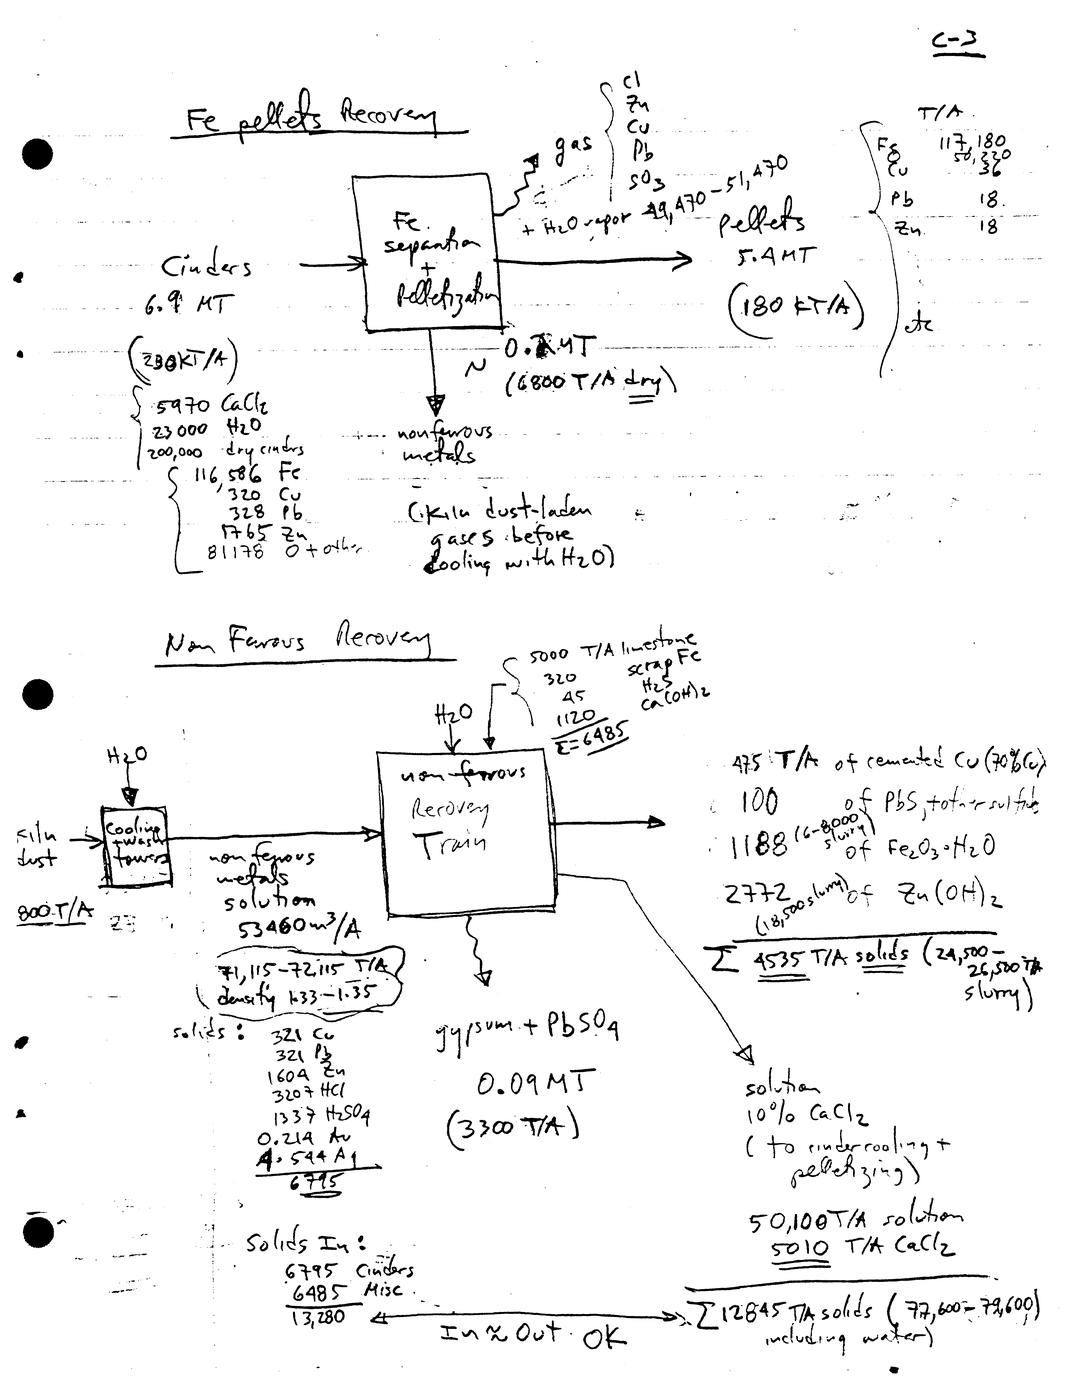 C-3
Fe pellets Recovery
Cl
Zn
Cu
Pb
SO3
gas
+ H2O vapor 49,470-51,470
T/A
Fe 117,180
O 50,220
Cu 36
Pb 18.
Zn 18
etc
Fe
separation
+
Pelletization
Cinders
6.9 MT
(230KT/A)
pellets
5.4 MT
(180 KT/A)
~ 0.2 MT
(6800 T/A dry)
5970 CaCl2
23000 H2O
200,000 dry cinders
116,586 Fe
320 Cu
328 Pb
1765 Zn
81178 O + other
nonferrous
metals
(kiln dust-laden
gases before
cooling with H2O)
Non Ferrous Recovery
5000 T/A limestone
320 scrap Fe
45 H2S
1120 Ca(OH)2
Σ=6485
H2O
H2O
non-ferrous
Recovery
Train
Cooling
+ wash
towers
kiln
dust
800 T/A
non ferrous
metals
solution
53460 m³/A
71,115-72,115 T/A
density 1.33-1.35
solids:
321 Cu
321 Pb
1604 Zn
3207 HCl
1337 H2SO4
0.214 Au
4.544 Ag
6795
gypsum + PbSO4
0.09 MT
(3300 T/A)
475 T/A of cemented Cu (70% Cu)
100 of PbS, + other sulfides
1188 (6-8,000 slurry) of Fe2O3·H2O
2772 (18,500 slurry) of Zn(OH)2
Σ 4535 T/A solids (24,500-
26,500 T/A
slurry)
solution
10% CaCl2
(to cinder cooling +
pelletizing)
50,100 T/A solution
5010 T/A CaCl2
Solids In:
6795 Cinders
6485 Misc
13,280
In ≈ Out OK
Σ 12845 T/A solids (77,600-79,600)
including water)